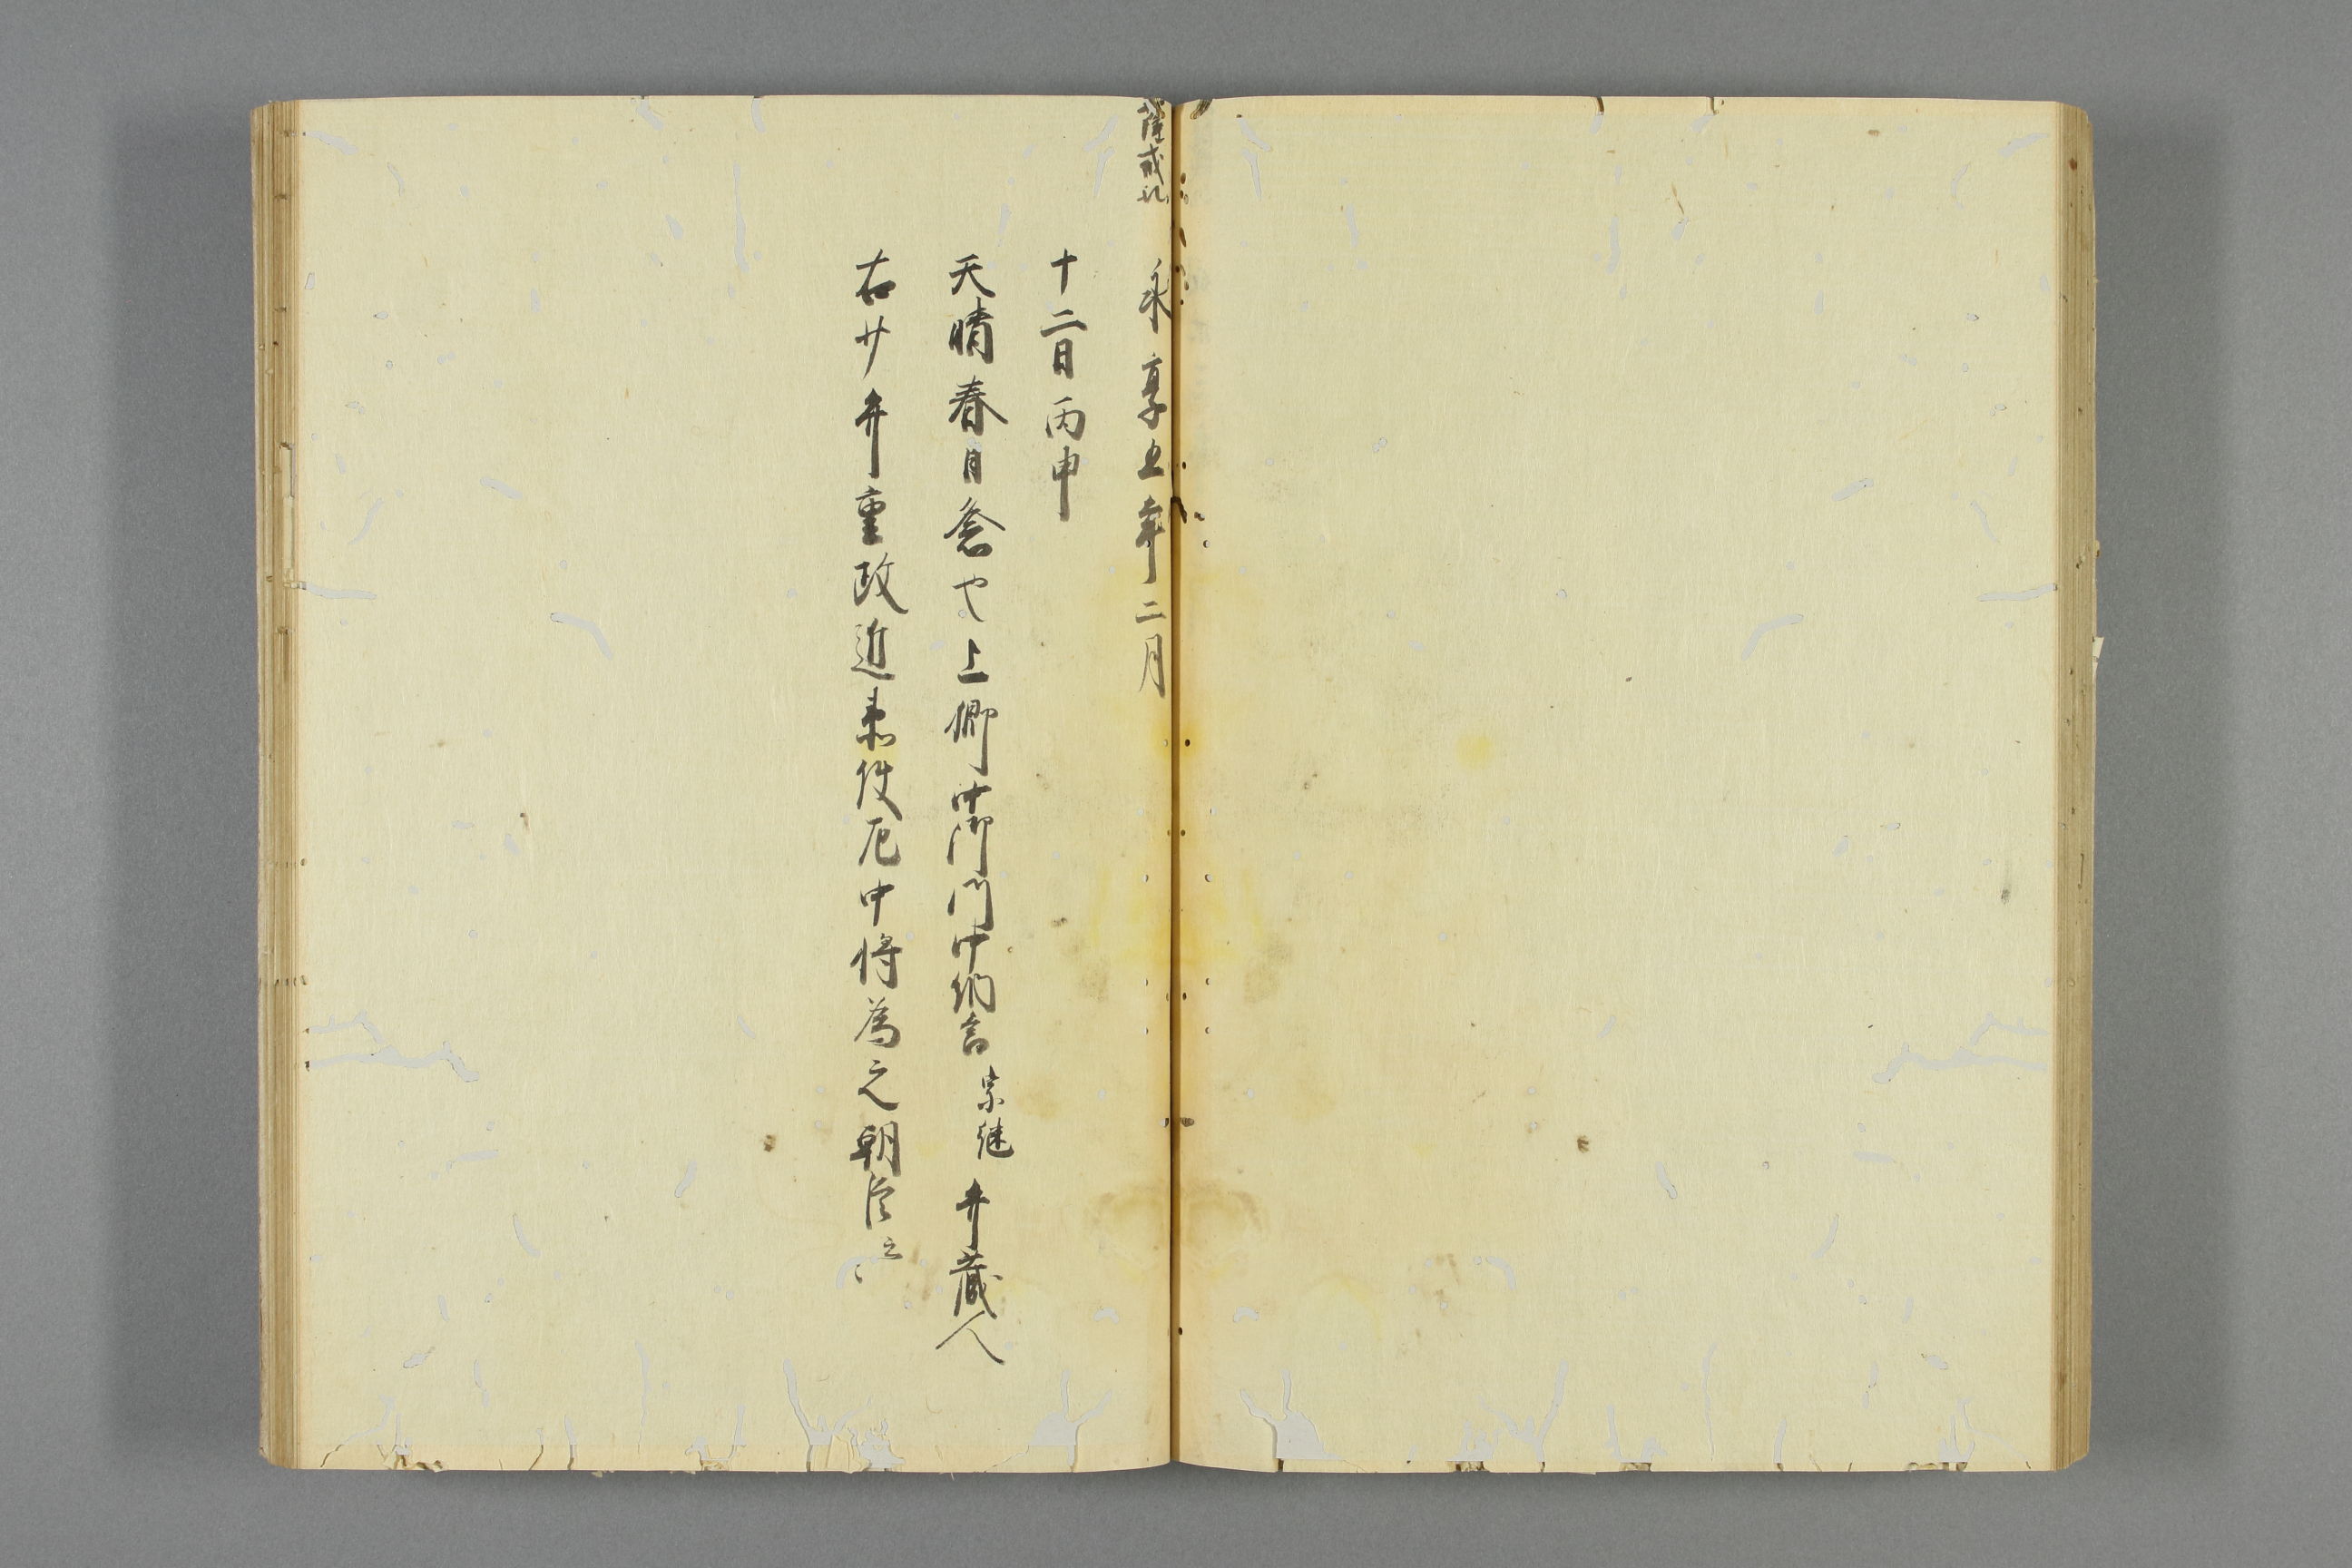 薩戒記
永享五年二月
十二日丙申
天晴春日祭也上卿中御門中納言宗継弁蔵人
右少弁重政近衛使左中将為之朝臣云々